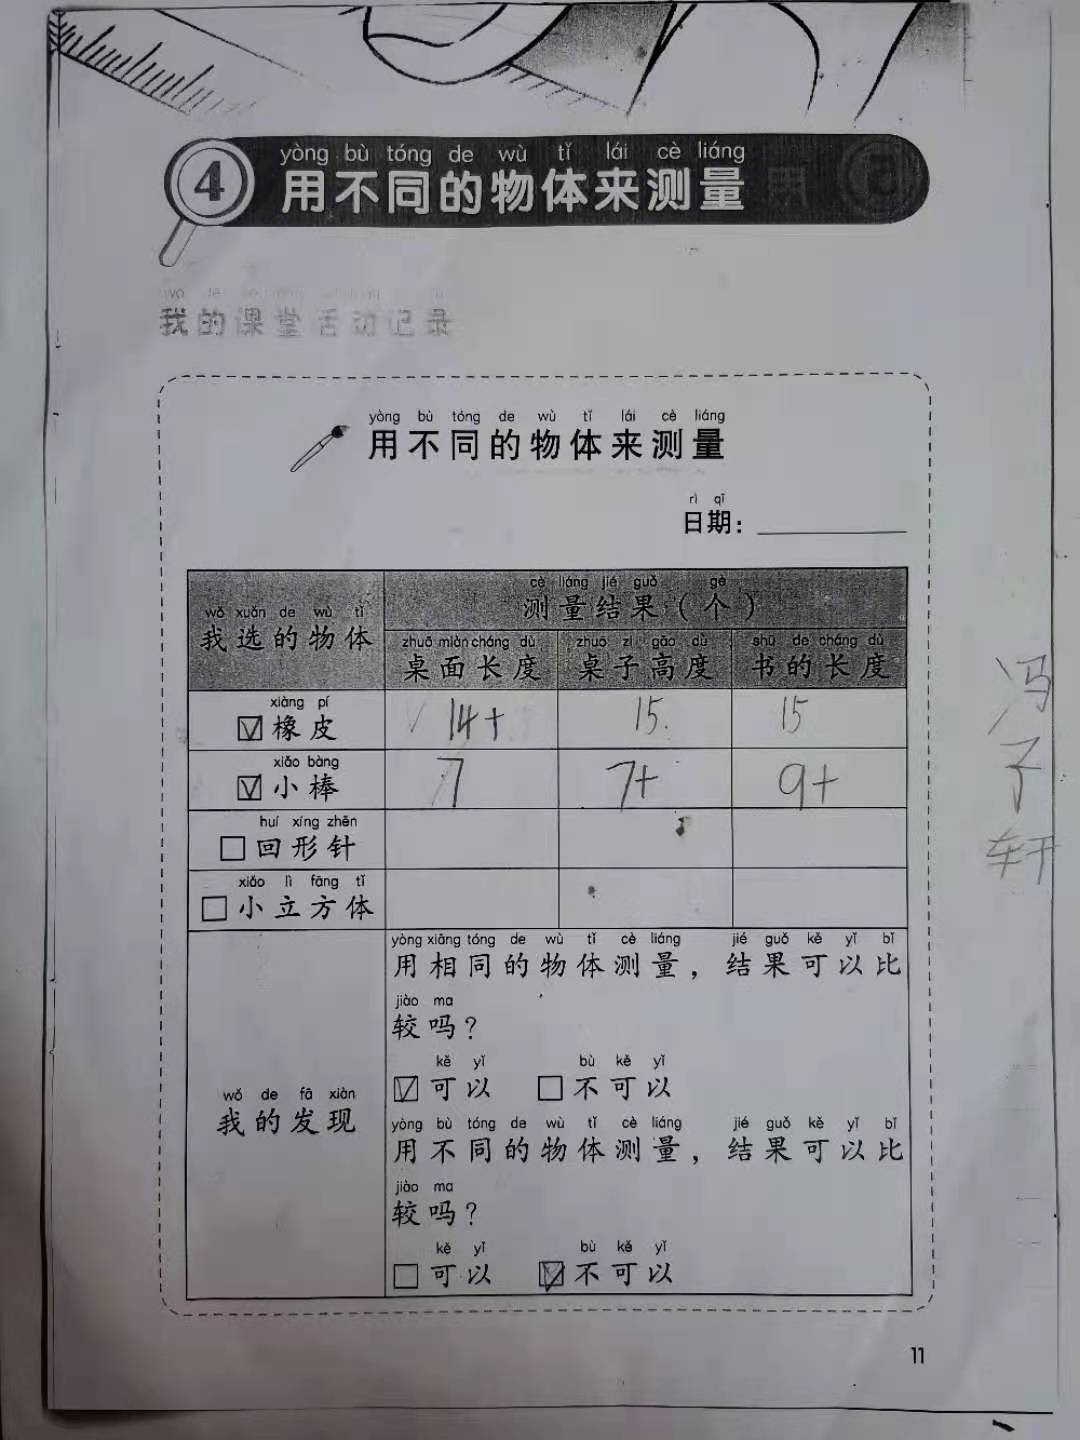 yòng bù tóng de wù tǐ lái cè liáng
4 用不同的物体来测量
我的课堂活动记录
yòng bù tóng de wù tǐ lái cè liáng
用不同的物体来测量
rì qī
日期：
cè liáng jié guǒ gè
测量结果（个）
wǒ xuǎn de wù tǐ
我选的物体
zhuō miàn cháng dù zhuō zi gāo dù shū de cháng dù
桌面长度 桌子高度 书的长度
xiàng pí
橡皮 14+ 15. 15
xiǎo bàng
小棒 7 7+ 9+
huí xíng zhēn
回形针
xiǎo lì fāng tǐ
小立方体
yòng xiāng tóng de wù tǐ cè liáng jié guǒ kě yǐ bǐ
用相同的物体测量，结果可以比
jiào ma
较吗？
kě yǐ bù kě yǐ
可以 不可以
wǒ de fā xiàn
我的发现
yòng bù tóng de wù tǐ cè liáng jié guǒ kě yǐ bǐ
用不同的物体测量，结果可以比
jiào ma
较吗？
kě yǐ bù kě yǐ
可以 不可以
冯子轩
11